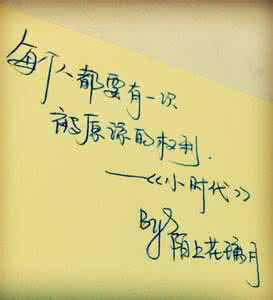 每个人都要有一次
被原谅的权利.
——《小时代》
By
陌上花满月